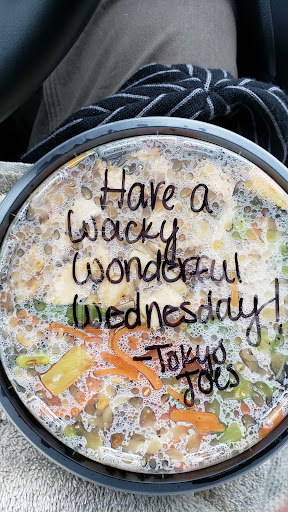 Have a
Wacky
Wonderful
Wednesday!
-Tokyo
Joes